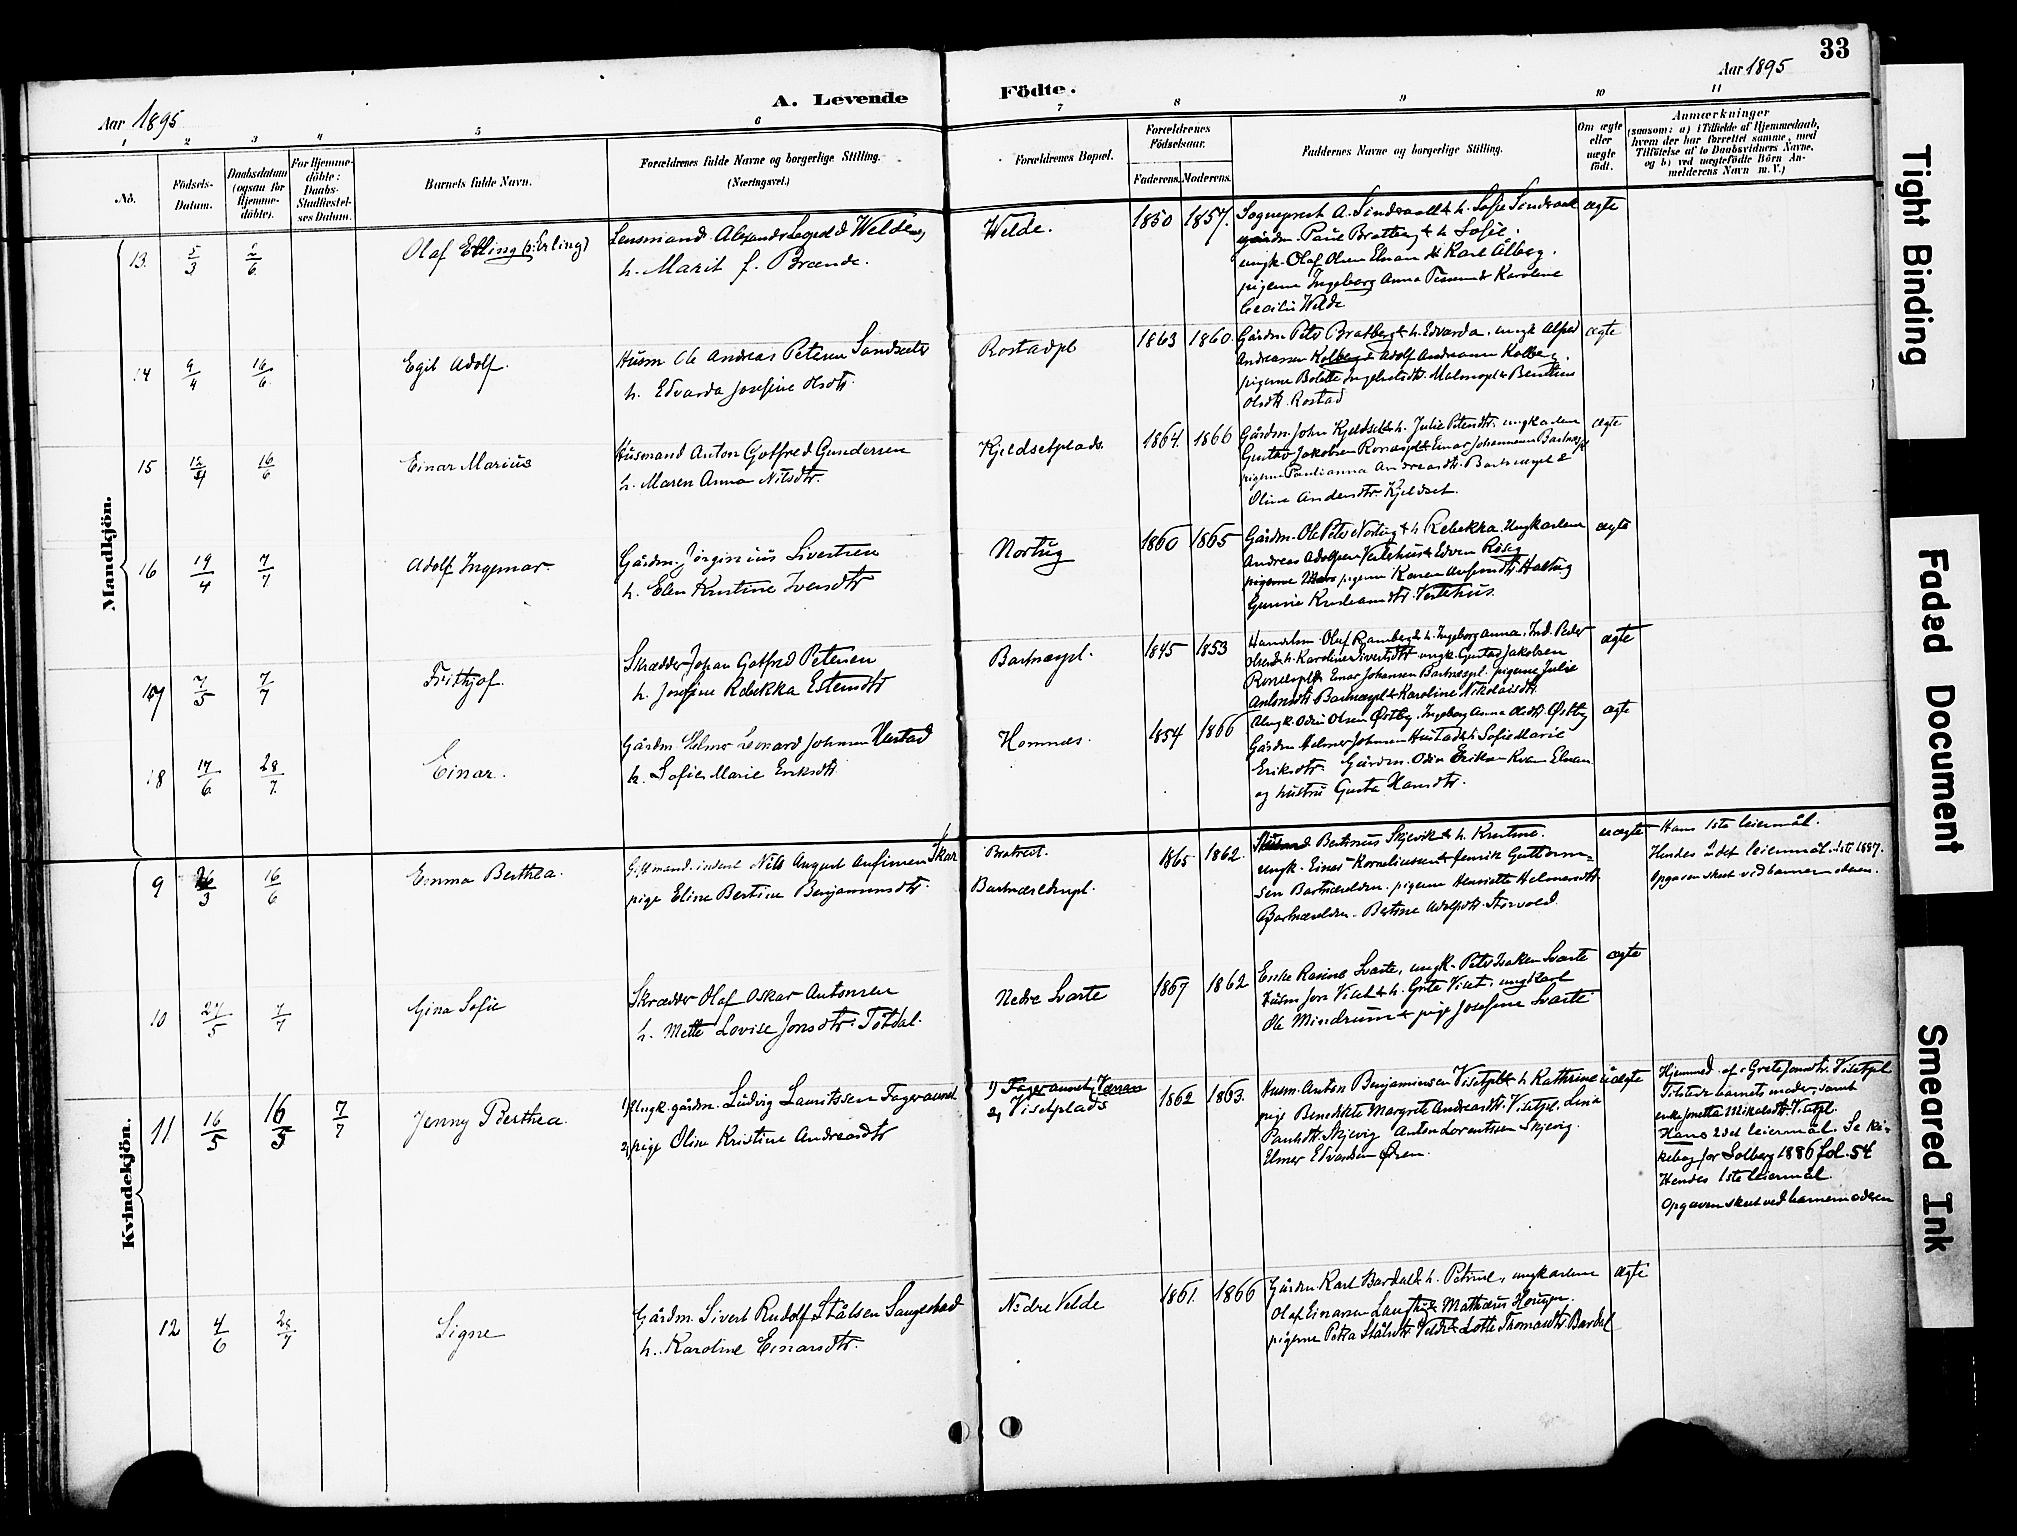 33
Aar 1895
Aar 1895
A. Levende
Födte.
1
2
3
4
5
6
7
8
9
10
11
No.
Födsels-
Datum.
Daabsdatum
(ogsaa for
Hjemme-
döbte).
For Hjemme-
döbte:
Daabs-
Stadfæstel-
ses Datum.
Barnets fulde Navn.
Forældrenes fulde Navne og borgerlige Stilling.
(Næringsvei.)
Forældrenes Bopæl.
Forældrenes
Födselsaar.
Faderens.
Moderens.
Faddernes Navne og borgerlige Stilling.
Om ægte
eller
uægte
født.
Anmærkninger
(saasom: a) i Tilfælde af Hjemmedaab,
hvem der har forrettet samme, med
Tilföielse af to Daabsvidners Navne,
og b) ved uægtefödte Börn An-
melderens Navn m. V.)
Mandkjön.
13. 5/3 2/6 Olaf Erling (Erling)
Lensmand Alexander Leopold Welde og
h. Marit f. Brende.
Welde. 1850 1857.
Sogneprest A. Sindvald & h. Sofie
gårdm. Paul Bratberg & h. Sofie.
ungk. Olaf Olsen Elnan & Karl Ålberg.
pigerne Ingeborg Anna & Karoline
Cecilie Welde
ægte
14 9/4 16/6 Egil Adolf.
Husm Ole Andreas Petersen Sandseter
h. Edvarda Josefine Olsdtr.
Rostadpl 1863 1860.
Gårdm Peter Bratberg & h. Edvarda, ungk Alfred
Andreassen Kolberg & Adolf Andreassen Kolberg,
pigerne Bolette Malmopl &
Olsdtr. Rostad
ægte
15 16/6 Einar Marius
Husmand Anton Gotfred Gundersen
h. Maren Anna Nilsdtr.
Kjeldsetplads. 1864. 1866
Gårdm. John Kjeldset & h. Julie Petersdtr. ungkarlene
Gustav Jakobsen & Einar Johannesen
pigerne Paulianna Andreasdtr. Bartnæspl &
Oline Andersdtr. Kjeldset.
ægte
16 19/4 7/7 Adolf Ingemar.
Gårdm. Jörginius Sivertsen
h. Elen Kristine Iversdtr
Nortug 1860 1865
Gårdm. Ole Peter Nortug & h. Rebekka. Ungkarlene
Andreas Adolfsen Vestehus & Edvin Roseg
pigerne Karen Halling
Gurine Kristiansdtr. Vestehus.
ægte
17 7/5 7/7 Frithjof.
Skrædder Johan Gotfred Petersen
h. Josefine Rebekka Estensdtr
Bartnæspl. 1845 1853
Handelsm. Oluf Ramberg & h. Ingeborg Anna, Ind. Peder
Olsen & h. Karoline Sivertsdtr ungk. Gustav Jakobsen
Einar Johansen Bartnæspl. pigerne Julie
Antonsdtr Bartnæspl & Karoline Nikolaisdtr.
ægte
18 17/6. 28/7. Einar.
Gårdm. Helmer Leonard Johnsen Hustad
h. Sofie Marie Eriksdtr
Homnes. 1854 1866
Ungk. Odin Olsen Østby. Ingeborg Anna Olsdtr. Østby
Gårdm Helmer Johnsen Hustad & h. Sofie Marie
Eriksdtr. Gårdm. Odin Eriksen Kvam Elnan
og hustru Gusta Hansdtr.
ægte
Kvindekjön.
9 26/3 16/6 Emma Berthea.
Nils August Anfinsen Skar
pige Eline Bertine Benjaminsdtr.
Bratreit.
Bartnæseldrepl. 1865 1862.
Husmand Bertinus Skjevik & h. Kristine.
ungk. Einar Korneliussen & Henrik Guttorm-
sen pigerne Henriette Helmersdtr
Bertine Adolfsdtr. Storvold.
uægte
Hans 1ste leiermål.
Hendes 2det leiermål. 1ste 1887.
Opgaven skeet ved barnemoderen.
10 27/5 7/7 Gina Sofie
Skrædder Olaf Oskar Antonsen
h. Mette Lovise Jonsdtr. Totdal.
Nedre Svarte 1867 1862
Enke Rasine Svarte, ungk. Peter Isaksen Svarte
Husm Jørn Viset & h. Grete Viset, ungkarl
Ole Mindrum & pige Josefine Svarte
ægte
11 16/5 16/5 7/7 Jenny Berthea.
1) Ungk. gårdm. Ludvig Lauritssen Fageraunet
2) pige Oline Kristine Andreasdtr
1) Fageraunet, Værran
2) Visetplads 1862 1863.
Husm. Anton Benjaminsen Visetpl & h Kathrine
pige Benedikte Margrete Andreasdtr. Visetpl. Lina
Paulsdtr. Skjevig Anton Lorentssen Skjevig.
Elmer Edvardsen Øren.
uægte
Hjemmed. af Grete Jonsdtr. Visetpl
Tilstede barnets moder, samt
enke Jonetta Mikalsdtr. Visetpl.
Hans 2det leiermål. Se kir-
kebog for Solberg 1886 fol. 54
Hendes 1ste leiermål.
Opgaven skeet ved barnemoderen
12 4/6 28/7 Signe
Gårdm. Sivert Rudolf Stålsen Saugestad
h. Karoline Einarsdtr.
Nedre Velde 1861. 1866
Gårdm. Karl Bardal & h. Petrine, ungkarlene
Olaf Einarsen Langhug & Mathæus Hougan.
pigerne Petra Stålsdtr. Velde & Lotte Thomasdtr. Bardal
ægte
Tight Binding
Faded Document
Smeared Ink